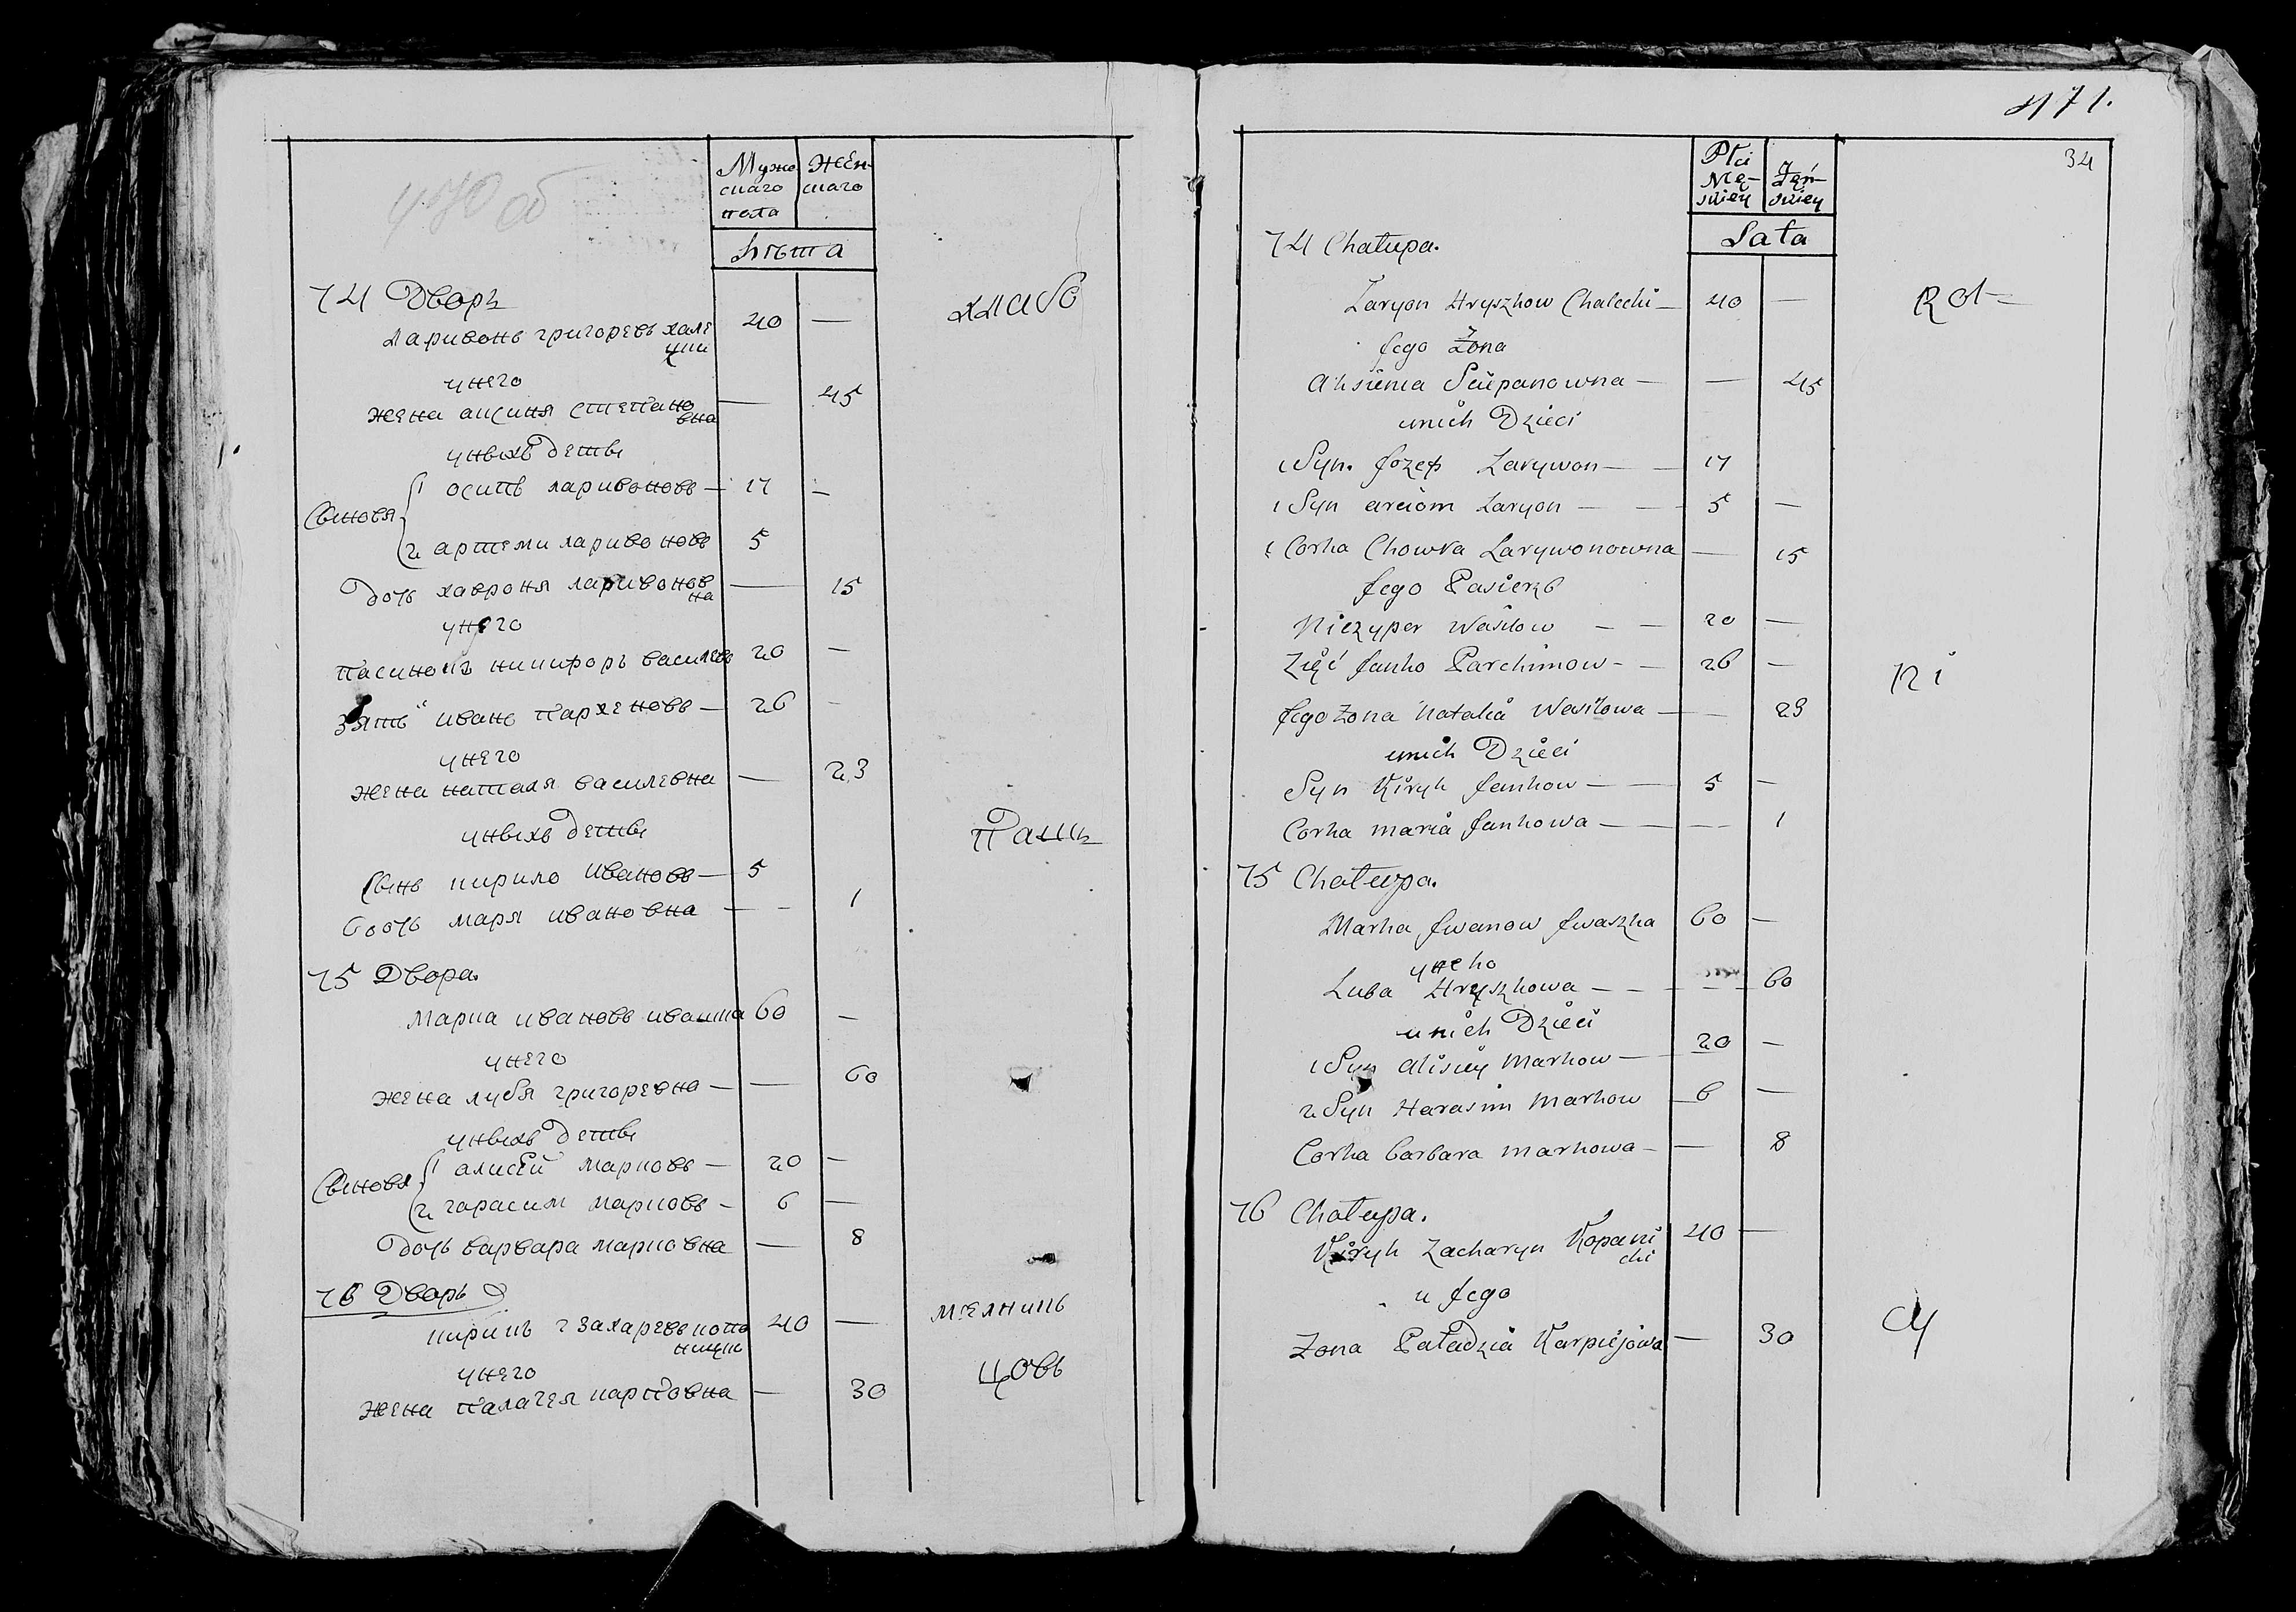 470 об
Муже Жен
скаго скаго
пола
лѣта
74 Дворъ
ларивонъ григоревъ хале 40 —
цки
унего
жена аксиня степано — 45
вна
унихъ дети
Сыновя 1 осипъ ларивоновъ — 17 —
2 артеми ларивоновъ 5
дочь хавроня ларивонов — 15
на
унего
пасинокъ никифоръ василевъ 20 —
зять иванъ пархеновъ — 26 —
унего
жена наталя василевна — 23
унихъ дети
Сынъ кирило ивановъ — 5
дочь маря ивановна — — 1
75 Двора.
марка ивановъ ивашка 60 —
унего
жена любя григоревна — — 60
унихъ дети
Сыновя 1 алисей марковъ — 20 —
2 гарасим марковъ — 6 —
дочь варвара марковна — 8
76 Дворъ
кирикъ захаревъ копа 40 —
ницки
унего
жена палагея карповна — 30
хлаbо
пашъ
мелник
цовъ
471.
34
Płci
Mę- Żeń-
skiey skiey
Lata
74 Chałupa.
Laryon Hryszkow Chalecki — 40 —
Jego Żona
Aksienia Sciepanowna — — 45
unich Dzieci
1 Syn. Jozef Larywon — — 17
1 Syn arciom Laryon — — 5 —
1 Corka Chowra Larywonowna — 15
Jego Pasierzb
Niczyper Wasilow — — 20 —
Zięć Janko Parchimow — — 26 —
Jego Zona Natalia Wasilowa — — 23
unich Dzieci
Syn Kiryk Jankow — — 5 —
Corka maria Jankowa — — — 1
75 Chałupa.
Marka Jwanow Jwaszka 60 —
унеho
Luba Hryszkowa — — — — 60
unich Dzieci
1 Syn alisiey Markow — 20 —
2 Syn Harasim Markow 6 —
Corka barbara markowa — — 8
76 Chałupa.
Kiryk Zacharyn Kopani 40 —
cki
u Jego
Zona Paładzia Karpiejowa — 30
Rol-
ni
cy